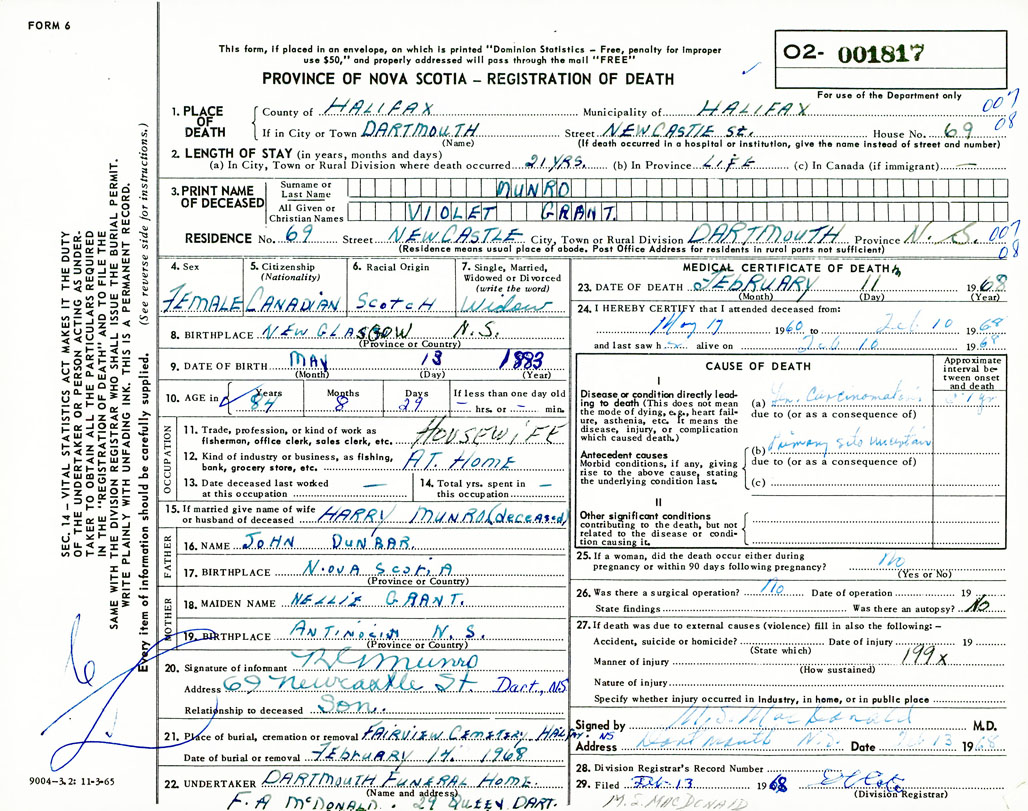 FORM 6
This form, if placed in an envelope, on which is printed "Dominion Statistics – Free, penalty for improper
use $50," and properly addressed will pass through the mail "FREE"
PROVINCE OF NOVA SCOTIA – REGISTRATION OF DEATH
02- 001817
For use of the Department only
007
08
1. PLACE OF DEATH
County of HALIFAX Municipality of HALIFAX
If in City or Town DARTMOUTH Street NEWCASTLE St. House No. 69
(Name) (If death occurred in a hospital or institution, give the name instead of street and number)
2. LENGTH OF STAY (in years, months and days)
(a) In City, Town or Rural Division where death occurred 21 YRS. (b) In Province LIFE (c) In Canada (if immigrant) —
3. PRINT NAME OF DECEASED
Surname or Last Name MUNRO
All Given or Christian Names VIOLET GRANT.
RESIDENCE No. 69 Street NEWCASTLE City, Town or Rural Division DARTMOUTH Province N. S. 007
08
(Residence means usual place of abode. Post Office Address for residents in rural parts not sufficient)
4. Sex
FEMALE
5. Citizenship
(Nationality)
CANADIAN
6. Racial Origin
SCOTCH
7. Single, Married,
Widowed or Divorced
(write the word)
Widow
8. BIRTHPLACE NEW GLASGOW N.S.
(Province or Country)
9. DATE OF BIRTH MAY 13 1883
(Month) (Day) (Year)
10. AGE in Years Months Days If less than one day old
84 8 29 — hrs. or — min.
OCCUPATION
11. Trade, profession, or kind of work as
fisherman, office clerk, sales clerk, etc. HOUSEWIFE
12. Kind of industry or business, as fishing,
bank, grocery store, etc. AT HOME
13. Date deceased last worked
at this occupation —
14. Total yrs. spent in
this occupation —
15. If married give name of wife
or husband of deceased HARRY MUNRO (deceased)
FATHER
16. NAME JOHN DUNBAR.
17. BIRTHPLACE NOVA SCOTIA
(Province or Country)
MOTHER
18. MAIDEN NAME NELLIE GRANT.
19. BIRTHPLACE N. S.
(Province or Country)
20. Signature of informant Munro
Address 69 Newcastle St. Dart., NS
Relationship to deceased Son.
21. Place of burial, cremation or removal FAIRVIEW CEMETERY HALIFAX. NS
Date of burial or removal FEBRUARY 14. 1968
22. UNDERTAKER DARTMOUTH FUNERAL HOME.
(Name and address)
F. A McDONALD. 29 QUEEN DART.
MEDICAL CERTIFICATE OF DEATH
23. DATE OF DEATH FEBRUARY 11 1968
(Month) (Day) (Year)
24. I HEREBY CERTIFY that I attended deceased from:
May 17 1960 to Feb 10 1968
and last saw h alive on Feb 10 1968
CAUSE OF DEATH
Approximate
interval be-
tween onset
and death
I
Disease or condition directly lead-
ing to death (This does not mean
the mode of dying, e.g., heart fail-
ure, asthenia, etc. It means the
disease, injury, or complication
which caused death.)
(a) Carcinomatosis 1 yr
due to (or as a consequence of)
(b) Primary site uncertain
due to (or as a consequence of)
(c)
Antecedent causes
Morbid conditions, if any, giving
rise to the above cause, stating
the underlying condition last.
II
Other significant conditions
contributing to the death, but not
related to the disease or condi-
tion causing it.
25. If a woman, did the death occur either during
pregnancy or within 90 days following pregnancy? No
(Yes or No)
26. Was there a surgical operation? No Date of operation 19
State findings Was there an autopsy? No
27. If death was due to external causes (violence) fill in also the following: –
Accident, suicide or homicide? Date of injury 19
(State which)
Manner of injury 199X
(How sustained)
Nature of injury
Specify whether injury occurred in Industry, in home, or in public place
Signed by M.S. MacDonald M.D.
Address Dartmouth N.S. Date Feb 13 1968
28. Division Registrar's Record Number
29. Filed Feb-13 1968
(Division Registrar)
M. S. MACDONALD
SEC. 14 – VITAL STATISTICS ACT MAKES IT THE DUTY
OF THE UNDERTAKER OR PERSON ACTING AS UNDER-
TAKER TO OBTAIN ALL THE PARTICULARS REQUIRED
IN THE "REGISTRATION OF DEATH" AND TO FILE THE
SAME WITH THE DIVISION REGISTRAR WHO SHALL ISSUE THE BURIAL PERMIT.
WRITE PLAINLY WITH UNFADING INK. THIS IS A PERMANENT RECORD.
Every item of information should be carefully supplied. (See reverse side for instructions.)
9004–3.2: 11-3-65